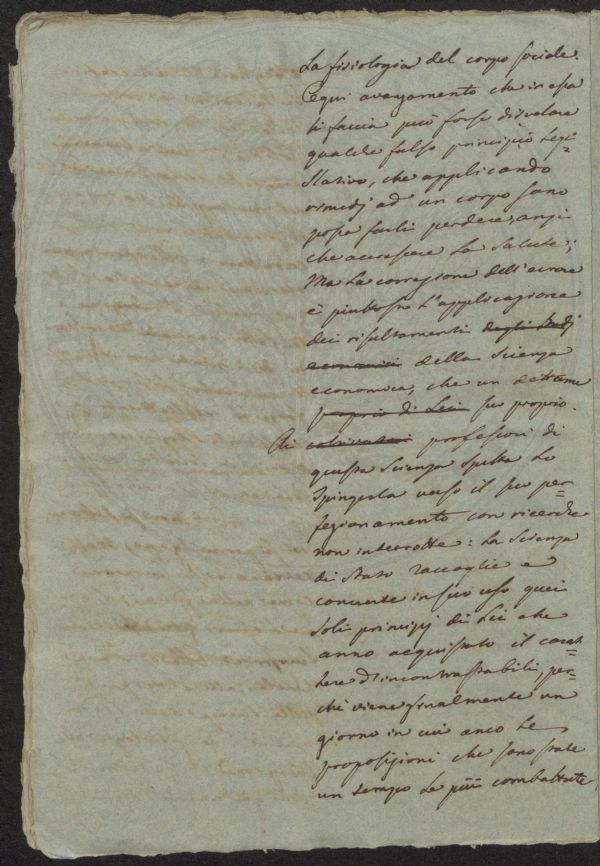 La fisiologia del corpo sociale.
Ogni avanzamento che in essa
si faccia può forse disvelare
qualche falso principio legi=
slativo, che applicando
rimedj ad un corpo sano
possa farli perdere, anzi
che accrescere la salute;
Ma la correzione dell'errore
è piuttosto l'applicazione
dei risultamenti degli studj
economici della scienza
economica, che un dettame
proprio di Lei suo proprio.
Ai coltivatori professori di
questa scienza spetta lo
spingerla verso il suo per=
fezionamento con ricerche
non interrotte: La scienza
di Stato raccoglie e
converte in suo uso quei
soli principj di Lei che
anno acquistato il carat=
tere d'incontrastabili, per=
chè viene finalmente un
giorno in cui anco le
proposizioni che sono state
un tempo le più combattute,